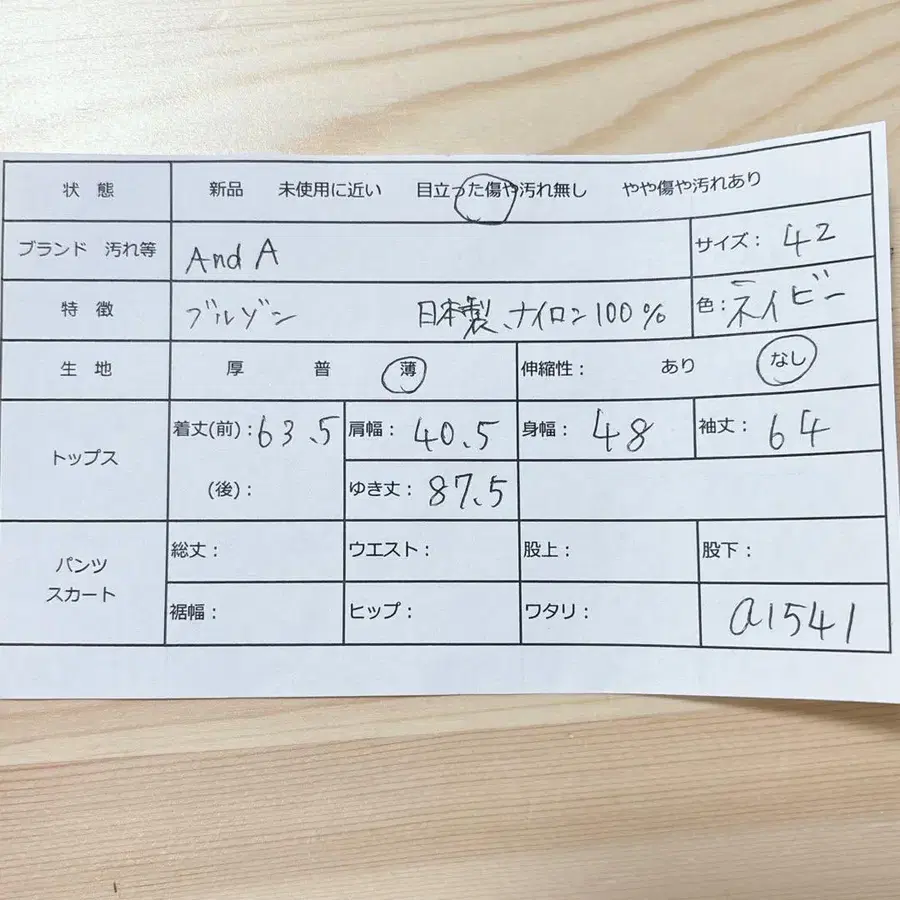 状 態 新品 未使用に近い 目立った傷や汚れ無し やや傷や汚れあり
ブランド 汚れ等 And A サイズ： 42
特 徴 ブルゾン 日本製、ナイロン100% 色：ネイビー
生 地 厚 普 薄 伸縮性： あり なし
トップス 着丈(前)：63.5 肩幅： 40.5 身幅： 48 袖丈： 64
(後)： ゆき丈： 87.5
パンツ スカート 総丈： ウエスト： 股上： 股下：
裾幅： ヒップ： ワタリ： a1541